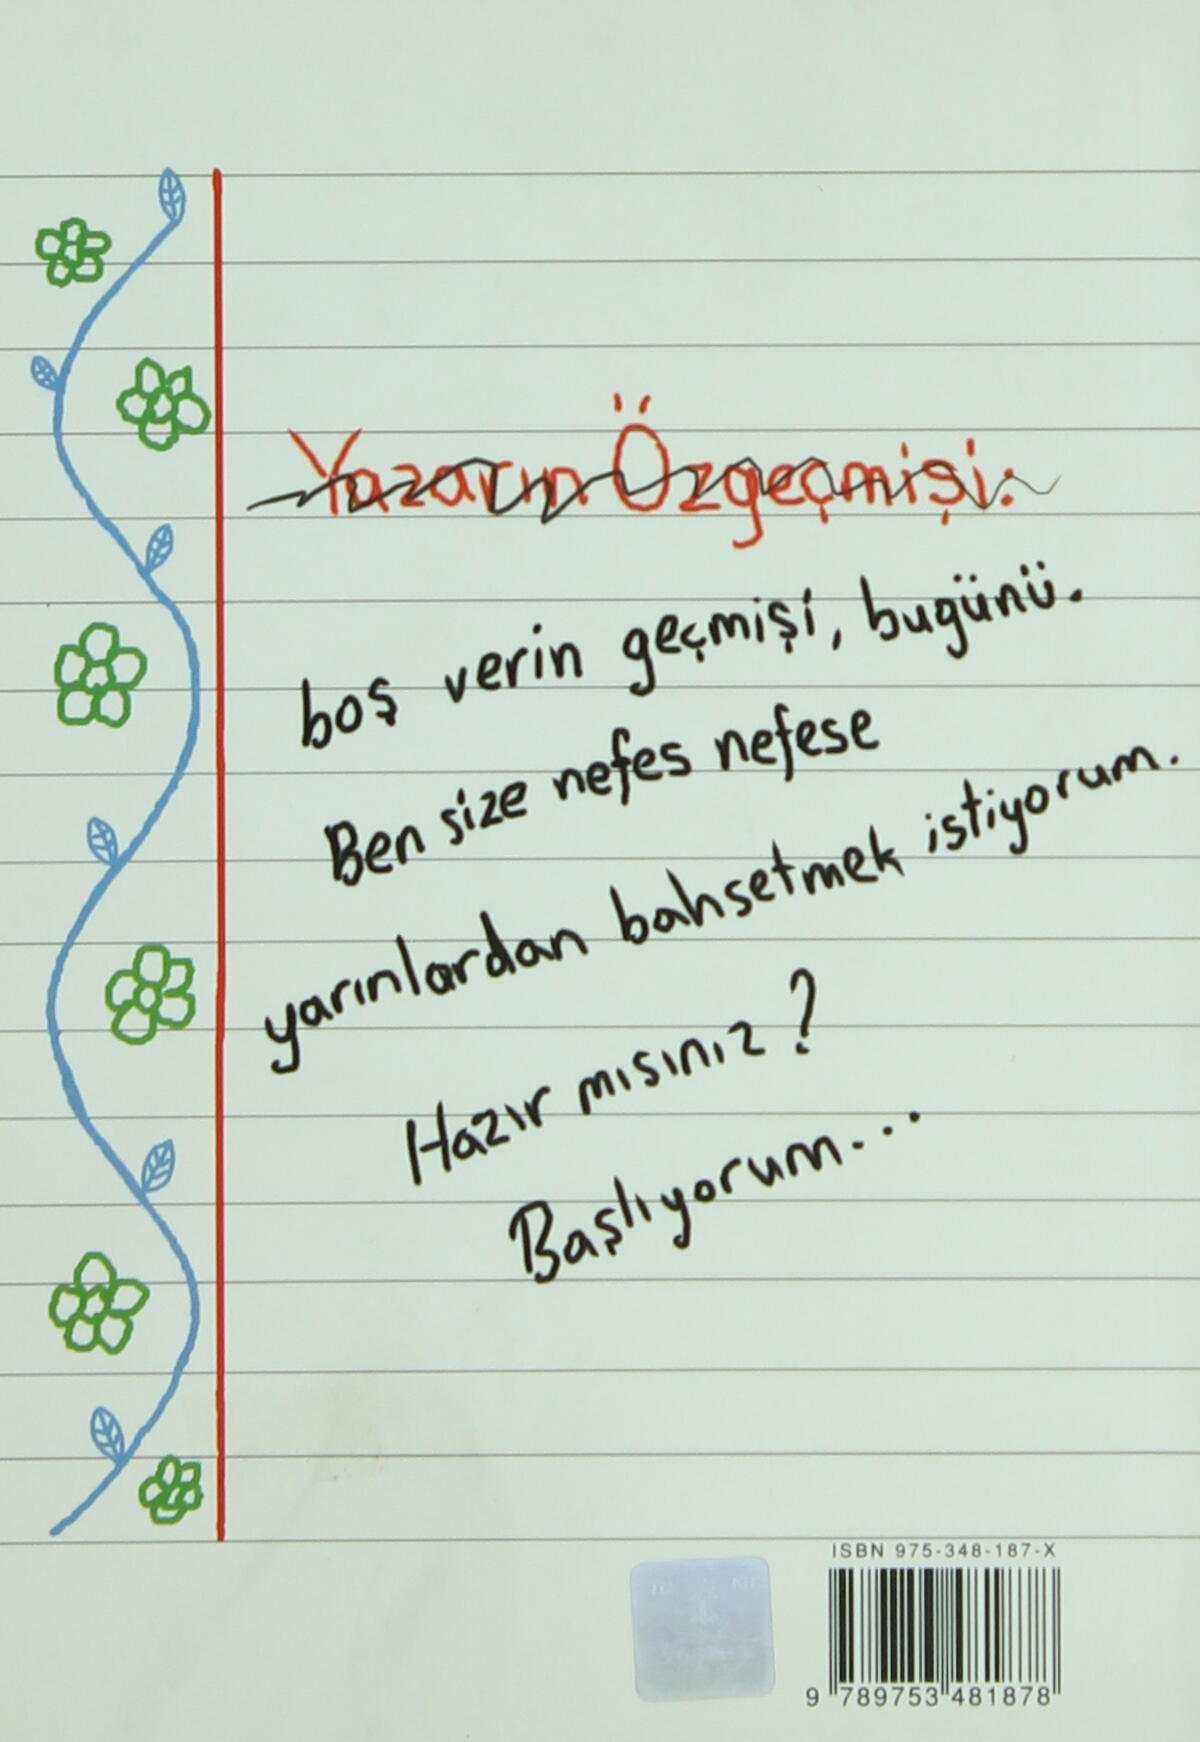 Yazarın Özgeçmişi:
boş verin geçmişi, bugünü.
Ben size nefes nefese
yarınlardan bahsetmek istiyorum.
Hazır mısınız?
Başlıyorum...
ISBN 975-348-187-X
9 789753 481878